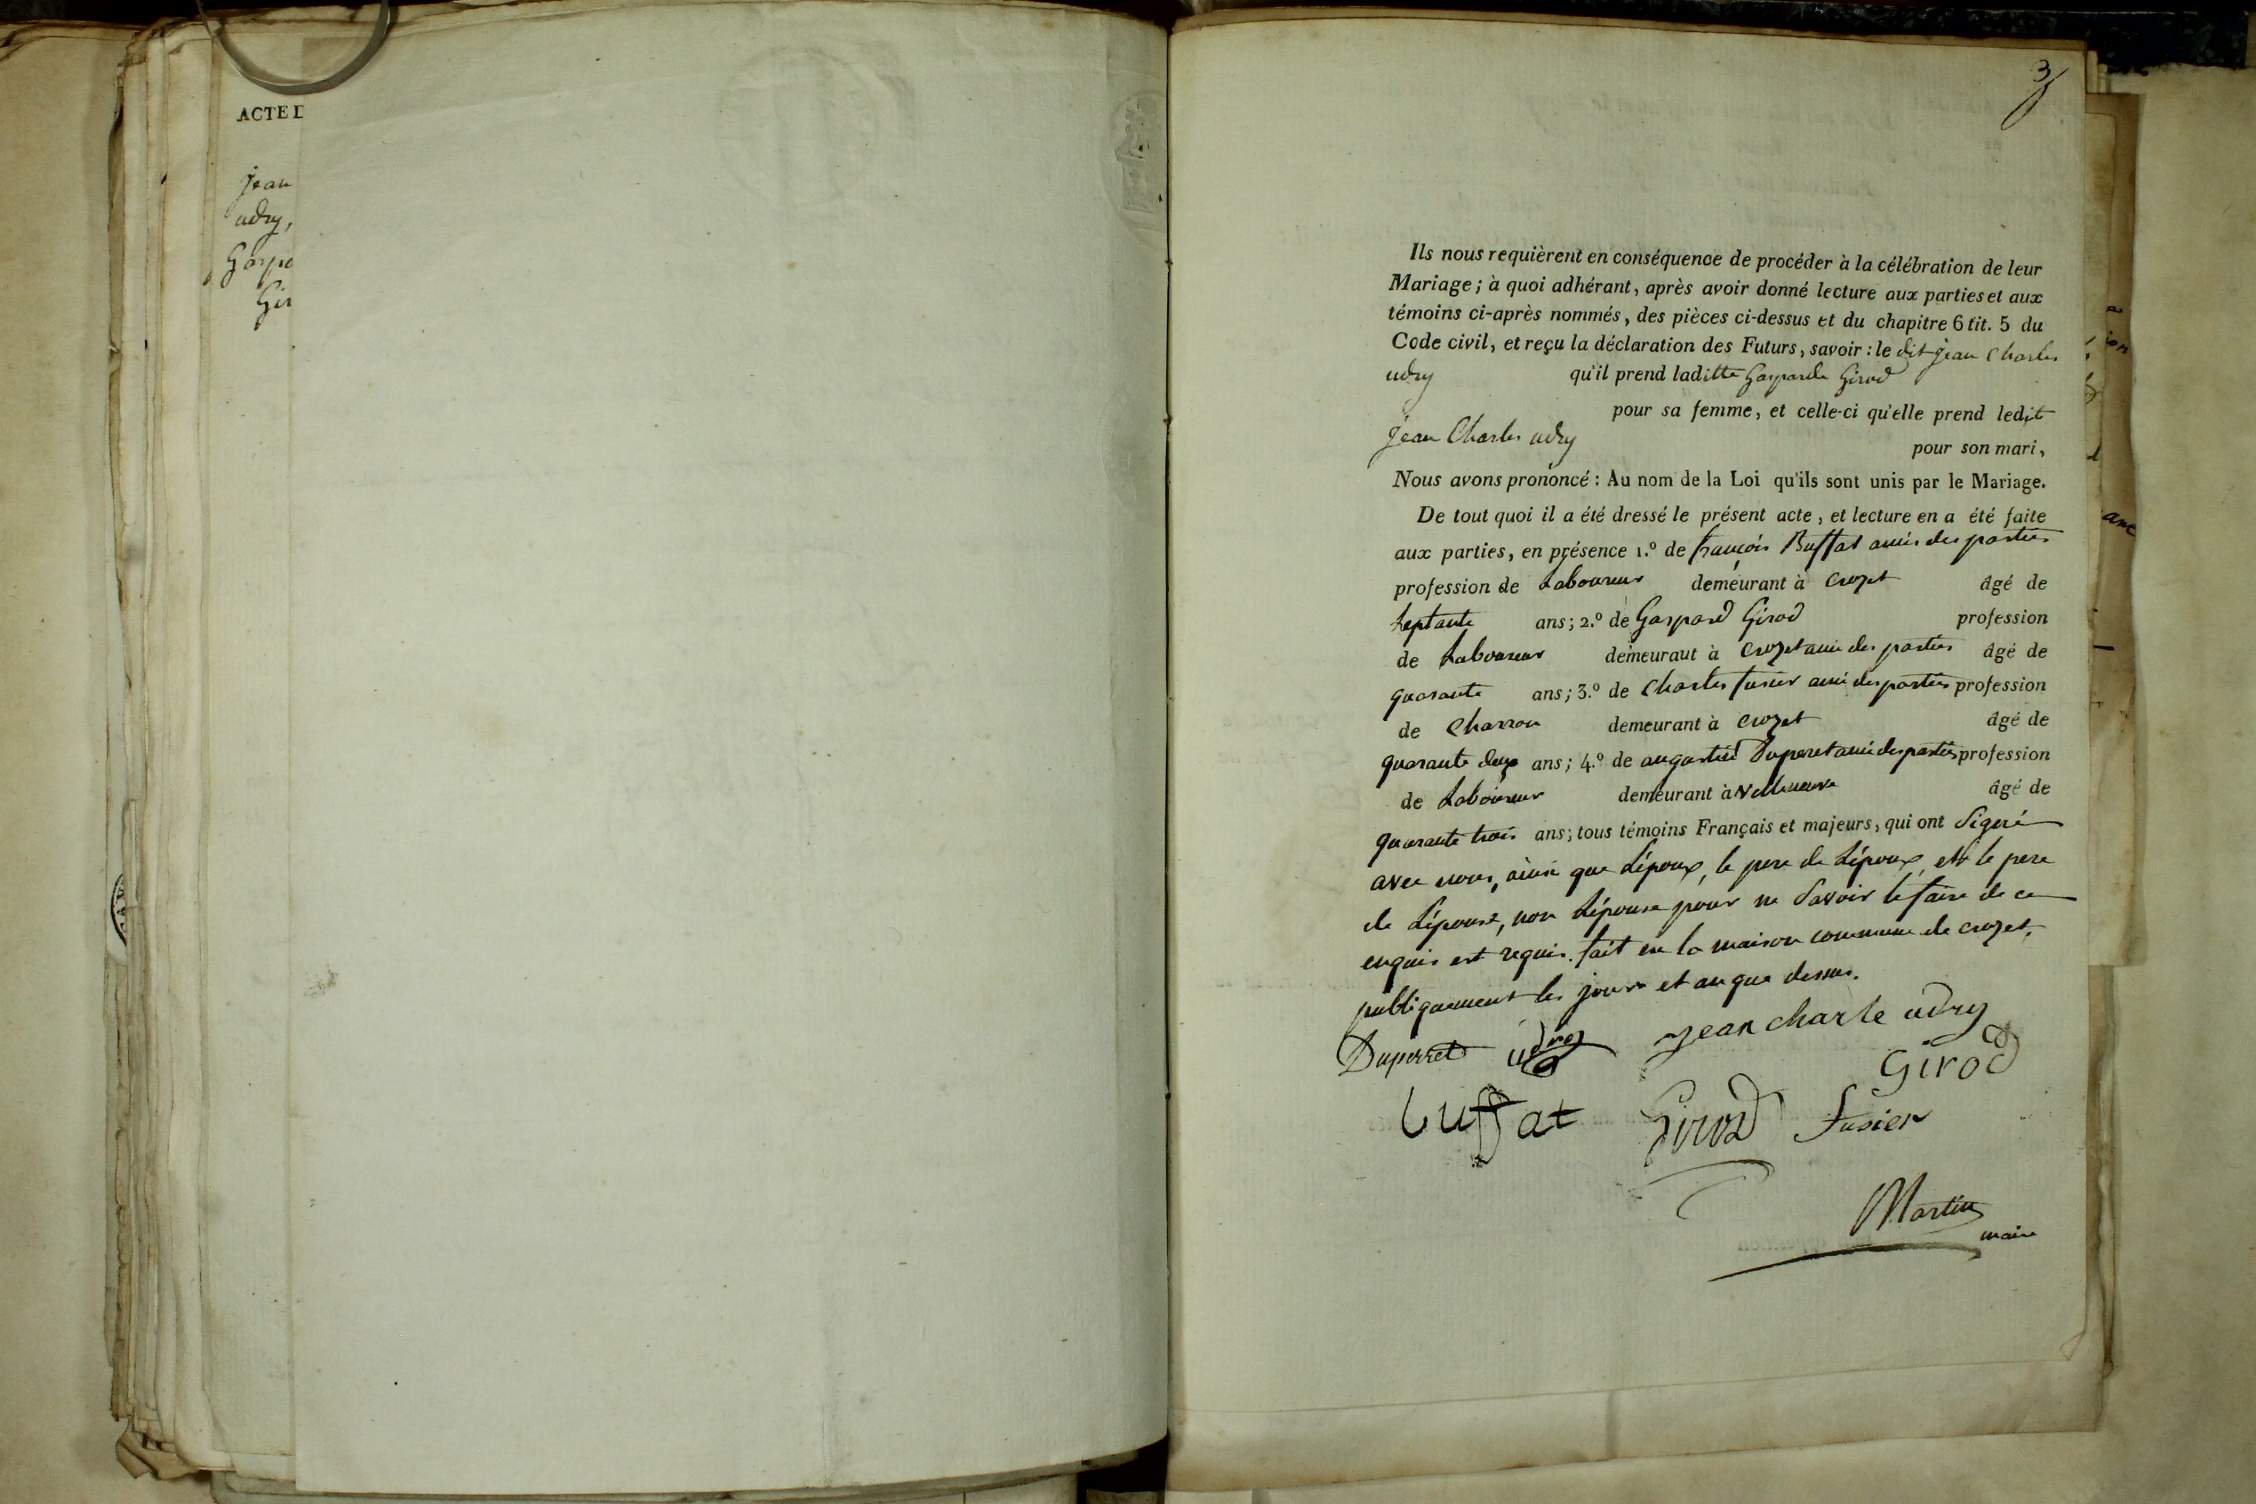 ACTE D
jean
udry,
Gaspa
Gir
3
Ils nous requièrent en conséquence de procéder à la célébration de leur
Mariage; à quoi adhérant, après avoir donné lecture aux parties et aux
témoins ci-après nommés, des pièces ci-dessus et du chapitre 6 tit. 5 du
Code civil, et reçu la déclaration des Futurs, savoir : le dit jean Charles
udry qu'il prend laditte Gasparde Girod
pour sa femme, et celle-ci qu'elle prend ledit
jean Charles udry pour son mari,
Nous avons prononcé : Au nom de la Loi qu'ils sont unis par le Mariage.
De tout quoi il a été dressé le présent acte, et lecture en a été faite
aux parties, en présence 1.º de françois Buffat amis des parties
profession de Laboureur demeurant à Crozet âgé de
Septante ans; 2.º de Gaspard Girod profession
de Laboureur demeuraut à Crozet ami des parties âgé de
quarante ans; 3.º de Charles fusier ami des parties profession
de Charron demeurant à Crozet âgé de
quarante deux ans; 4.º de augustin Duperet ami des parties profession
de Laboureur demeurant à Villeneuve âgé de
quarante trois ans; tous témoins Français et majeurs, qui ont Signé
avec nous, ainsi que Lépoux, le pere de Lépoux, et le pere
de Lépouse, non Lépouse pour ne Savoir le faire de ce
enquis est requis. fait en la maison commune de crozet,
publiquement les jour et an que dessus.
Duperret udry jean charle udry
Girod
buffat Girod fusier
Martin
maire
ion
anc